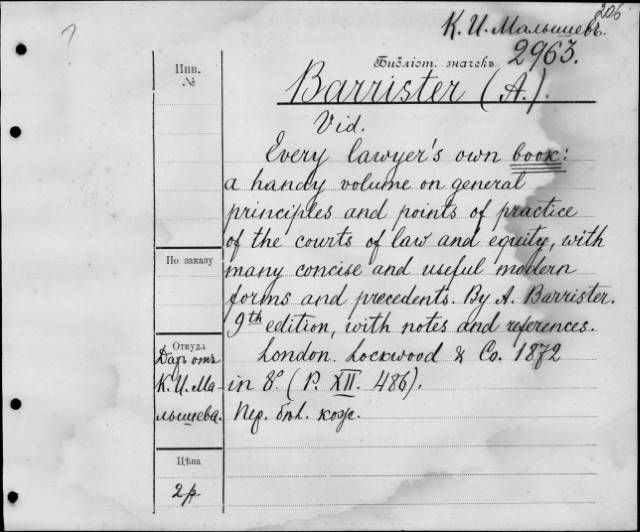 206
К. И. Малышевъ.
Библіот. значекъ 2963.
Инв.
№
Barrister (A.).
Vid.
Every lawyer's own book:
a handy volume on general
principles and points of practice
of the courts of law and equity, with
По заказу
many concise and useful modern
forms and precedents. By A. Barrister.
9th edition, with notes and references.
Откуда
London. Lockwood & Co. 1872
Даръ отъ
К. И. Ма-
лышева.
in 8º. (P. XII. 486).
Пер. бѣл. кож.
Цѣна
2 р.